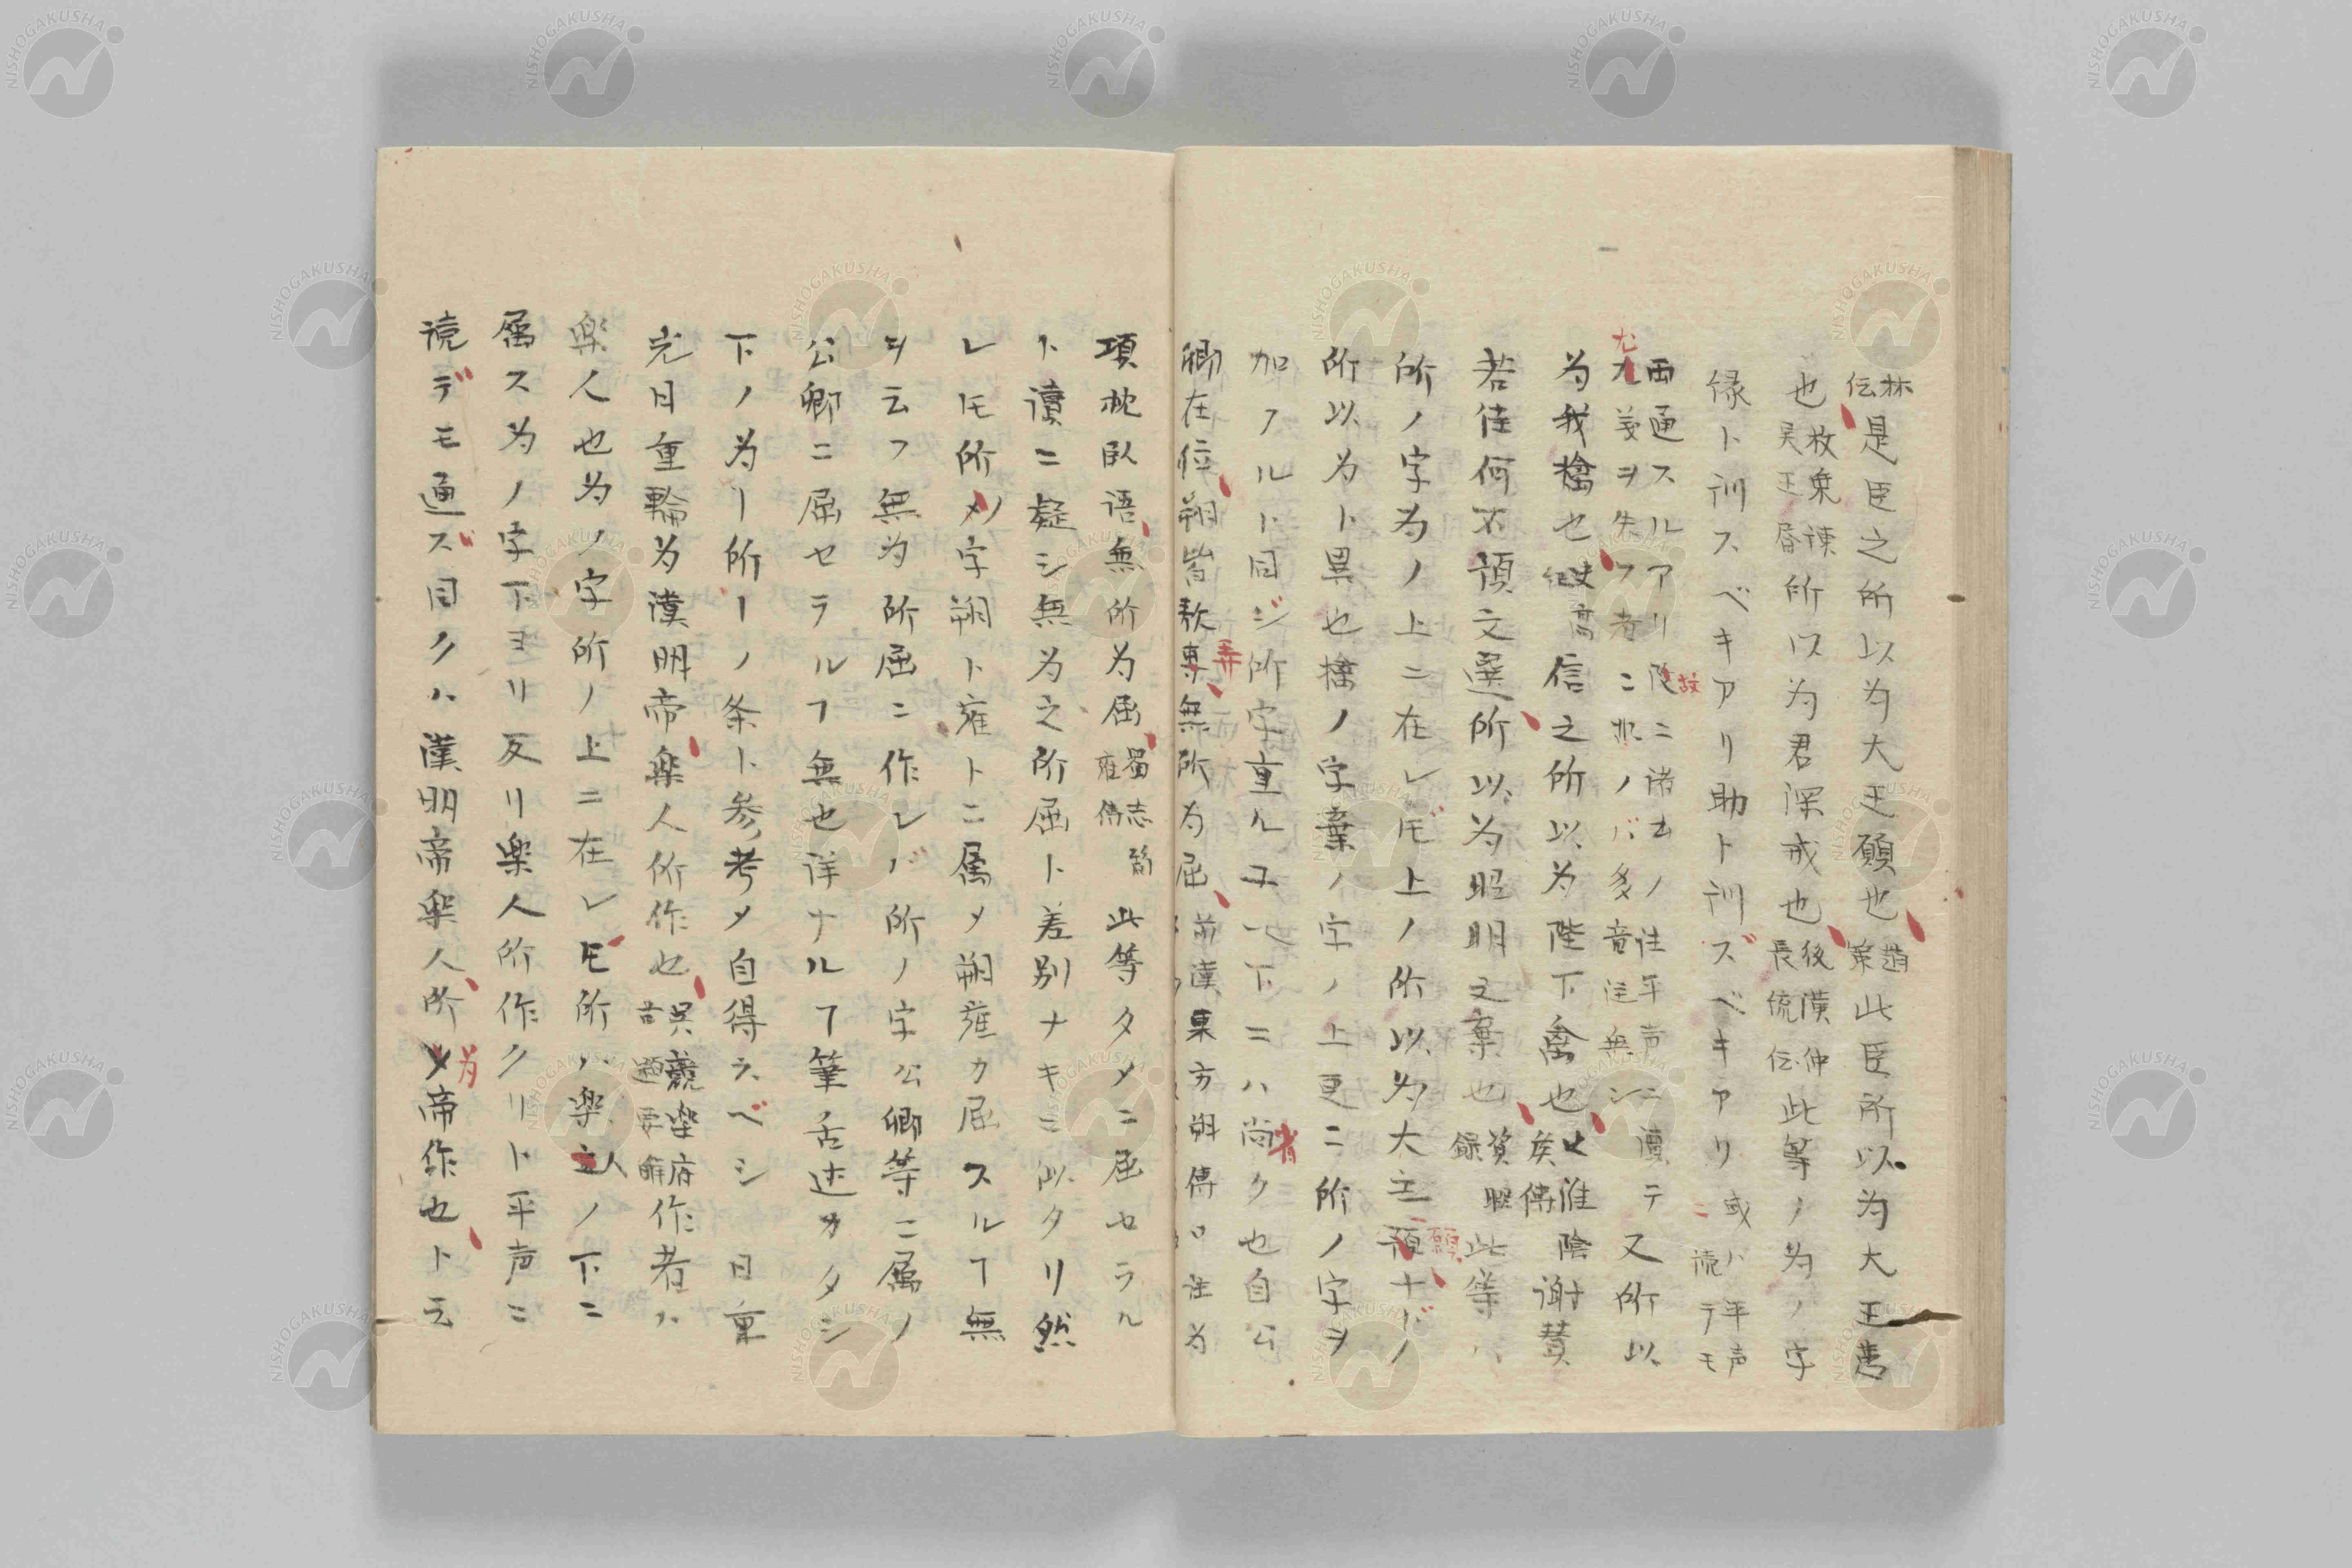 林伝是臣之所以為大王願也趙策此臣所以為大王患
也枚乗諌呉王書所以為君深戒也後漢仲長統伝此等ノ為ノ字
縁ト訓スベキアリ助ト訓ズベキアリ或ハ平声ニ読テモ
両通スルアリ故ニ諸家ノ注平声ニ讀テ尤義ヲ失フ者ニ非ノバ多音注無シ又所以
為我擒也史高紀信之所以為陛下禽也史淮陰侯傳謝賛
若佳何不預文選所以為昭明之棄也賓暇録此等ハ
所ノ字為ノ上ニ在レドモ上ノ所以為大王願ナドノ
所以為ト異也擒ノ字棄ノ字ノ上更ニ所ノ字ヲ
加フルト同ジ所字重ルユヘ下ニハ省ク也自公
卿在位朔皆敖弄無所為屈前漢東方朔傳口注為
項枕臥語無所為屈蜀志簡雍傳此等タメニ屈セラル
ト讀ニ疑シ無為之所屈ト差別ナキニ似タリ然
レ𪜈所ノ字朔ト雍トニ属メ朔雍カ屈スルヿ無
ヲ云フ無為所屈ニ作レバ所ノ字公卿等ニ属ノ
公卿ニ屈セラルヿ無也詳ナルヿ筆舌述カタシ
下ノ為ー所ーノ条ト参考メ自得スベシ 日重
光日重輪為漢明帝楽人所作也呉競楽府古題要解作者ハ
楽人也為ノ字所ノ上ニ在レ𪜈所ハ楽人ノ下ニ
属ス為ノ字下ヨリ反リ楽人所作クリト平声ニ
読デモ通ズ同クハ漢明帝楽人所為帝作也ト云